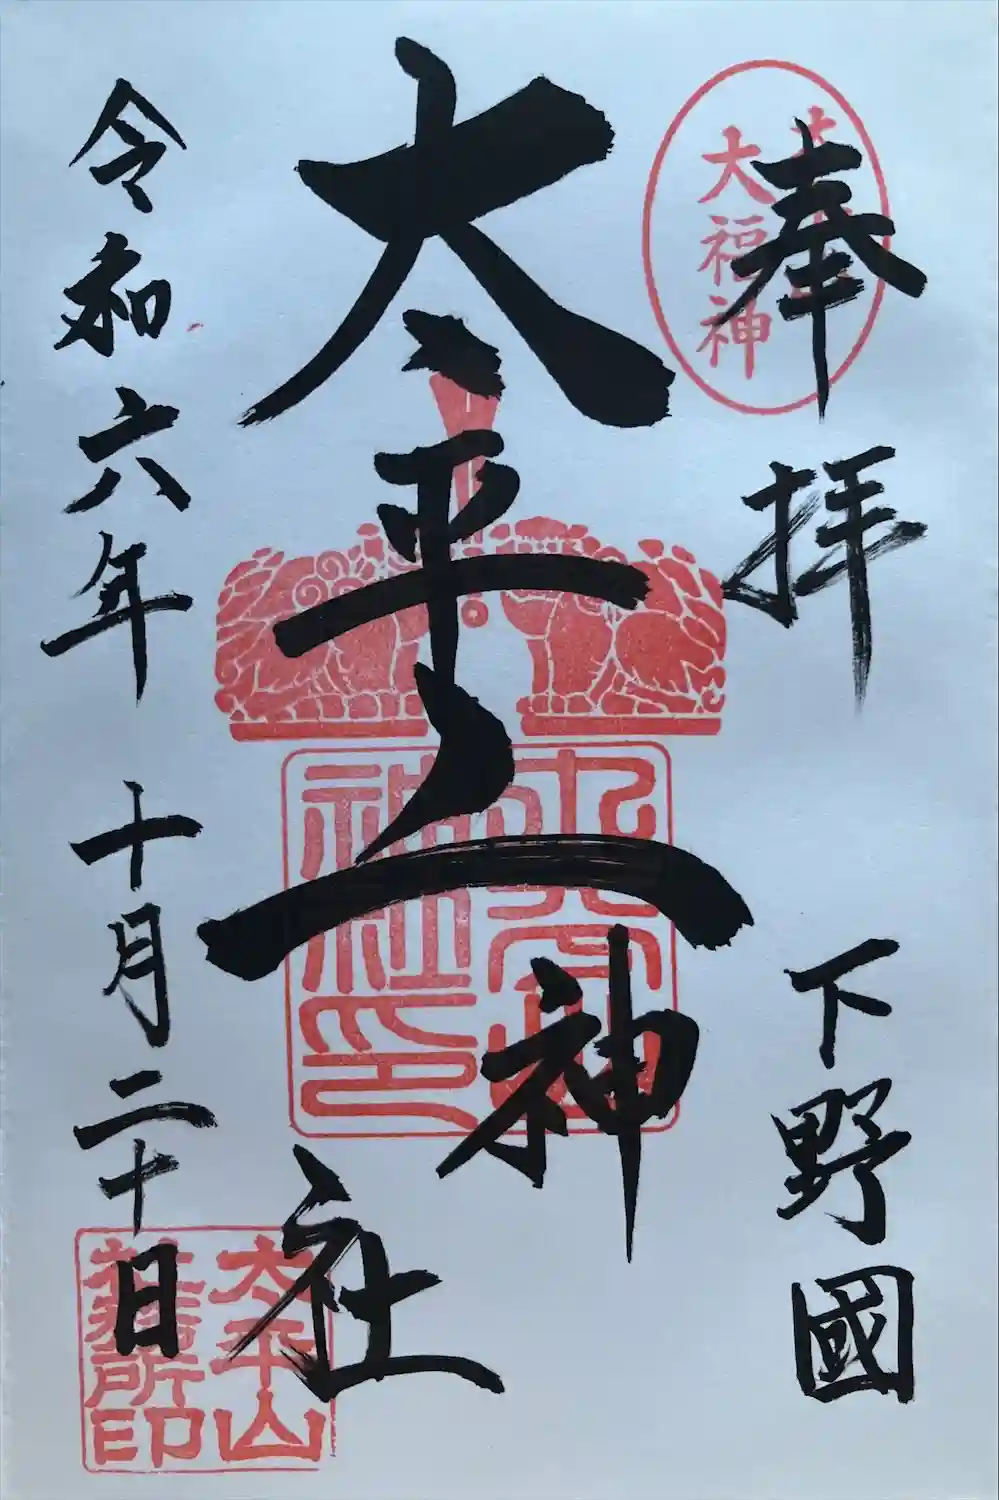 奉拝
下野國
大福神
太平山神社
太平山
神社印
令和六年
十月二十日
太平山
社務所印